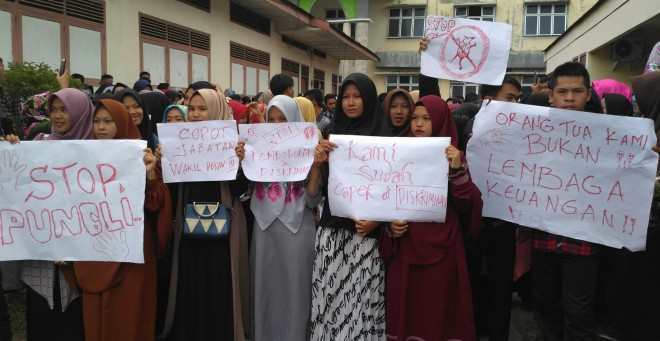 STOP
PUNGLI...
COPOT
JABATAN
WAKIL DEKAN III
DISKRIMINASI
Kami
Sudah
Capek di DISKRIMINASI
STOP
ORANG TUA KAMI
BUKAN !!!
LEMBAGA
KEUANGAN!!